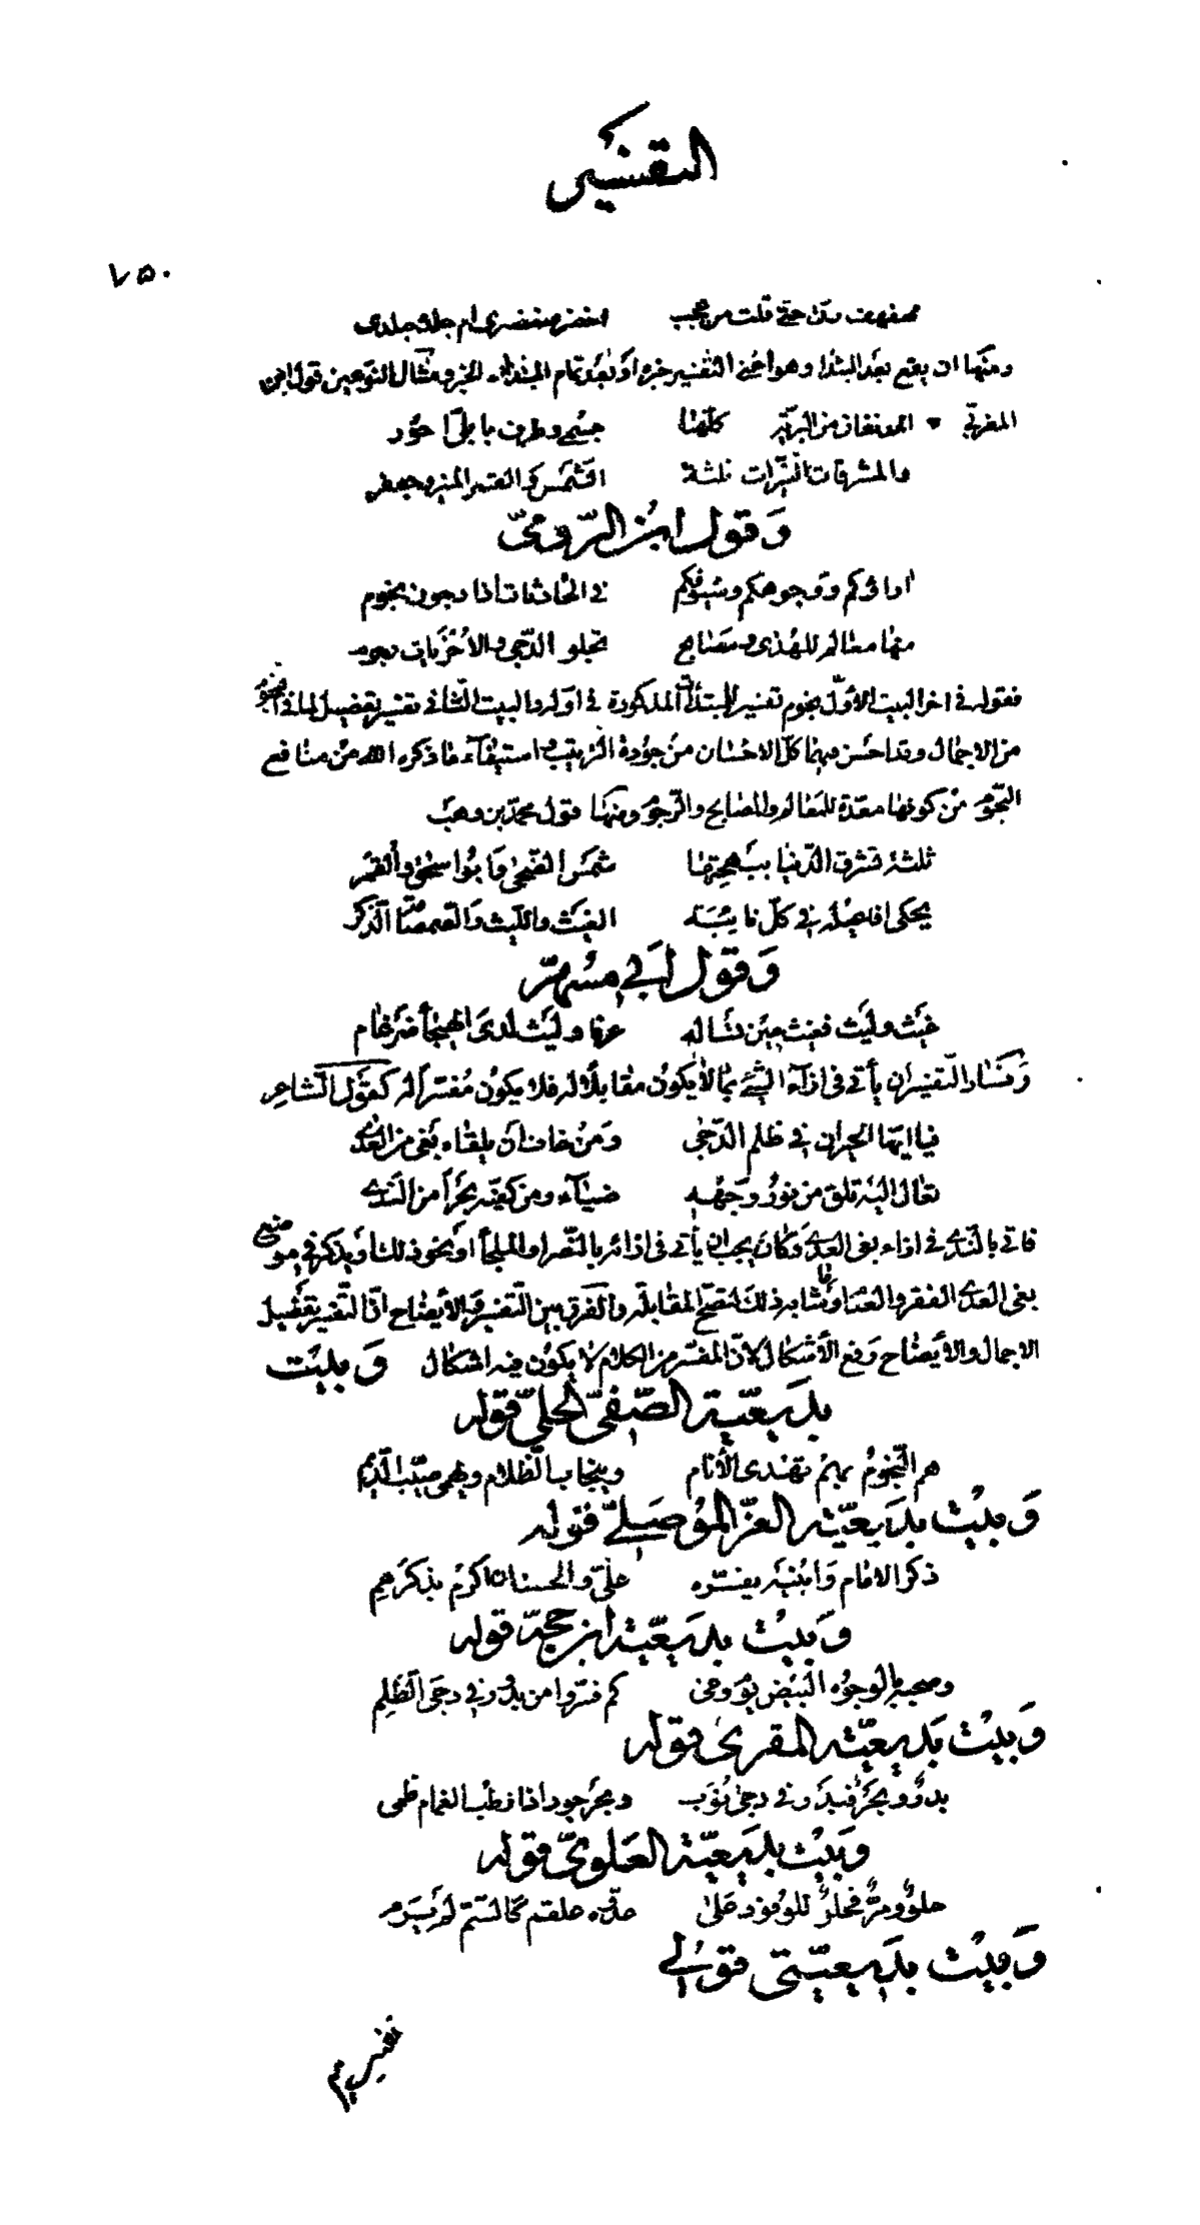 التفسير
٧٥٠
مهفهف رق حتى قلت من عجب اخضر من خصرى ام جلدك جلدى
ومنها ان يقع بعد المبتدا وهو اعنى التفسير خبره او بعد تمام المبتدا والخبر ومثال النوعين قول ابن
المغربى المدنفان من البرية كلها جسمى وطرف بابلى احور
والمشرقات النيرات ثلثة الشمس والقمر المنير وجعفر
وقول ابن الرومىّ
اراؤكم ووجوهكم وسيوفكم فى الحادثات اذا دجون نجوم
منها معالم للهدى ومصابح تجلو الدّجى والاخريات رجوم
فقوله فى اخر البيت الاوّل نجوم تفسير للمبتدأت المذكورة فى اوله والبيت الثانى تفسير تفصيل لما فى النجوم
من الاجمال وقد احسن فيهما كلّ الاحسان من جودة الترتيب واستيفاء ما ذكره الله من منافع
النجوم من كونها معدّة للمعالم والمصابح والرجوم ومنها قول محمد بن وهب
ثلثة تشرق الدّنيا ببهجتها شمس الضحى وابو اسحق والقمر
يحكى افاعيله فى كلّ نائبة الغيث والليث والصمصامة الذكر
وقول ابى مسهر
غيث وليث فغيث حين تساله عرفا وليث لدى الهيجا ضرغام
وفساد التفسير ان يأتى فى ازآء الشئ بما لا يكون مقابلا له فلا يكون مفسّرا له كقول الشاعر
فيا ايّها الحيران فى ظلم الدّجى ومن خاف ان يلقاه بغى من العدى
تعال اليه تلق من نور وجهه ضياء ومن كفّيه بحرا من الندى
فاتى بالندى فى ازاء بغى العدى وكان يجب ان يأتى فى ازائه بالنصر او الملجأ او نحو ذلك او يذكر فى موضع
بغى العدى الفقر والعنا وما شابه ذلك لتصحّ المقابلة والفرق بين التفسير والايضاح انّ التفسير تفصيل
الاجمال والايضاح رفع الاشكال لانّ المفسّر من الكلام لا يكون فيه اشكال وبيت
بديعيّة الصّفىّ الحلىّ قوله
هم النجوم بهم تهدى الانام وينجاب الظلام ويهمى صيّب الدّيم
وبيت بديعيّة العزّ الموصلىّ قوله
ذكر الامام وابنيه يفسّره علىّ والحسنان اكرم بذكرهم
وبيت بديعيّة ابن حجّة قوله
وصحبه بالوجوه البيض يوم وغى كم فسّروا من بدور فى دجى الظلم
وبيت بديعيّة المقرى قوله
بدر وبحر فبدر فى دجى نوب وبحر جود اذا قطب الغمام ظمى
وبيت بديعيّة العلوىّ قوله
حلو ومرّ فحلو للوفود على عداه علقم كالسّمّ لم يسم
وبيت بديعيّتى قولى
تفسيرهم